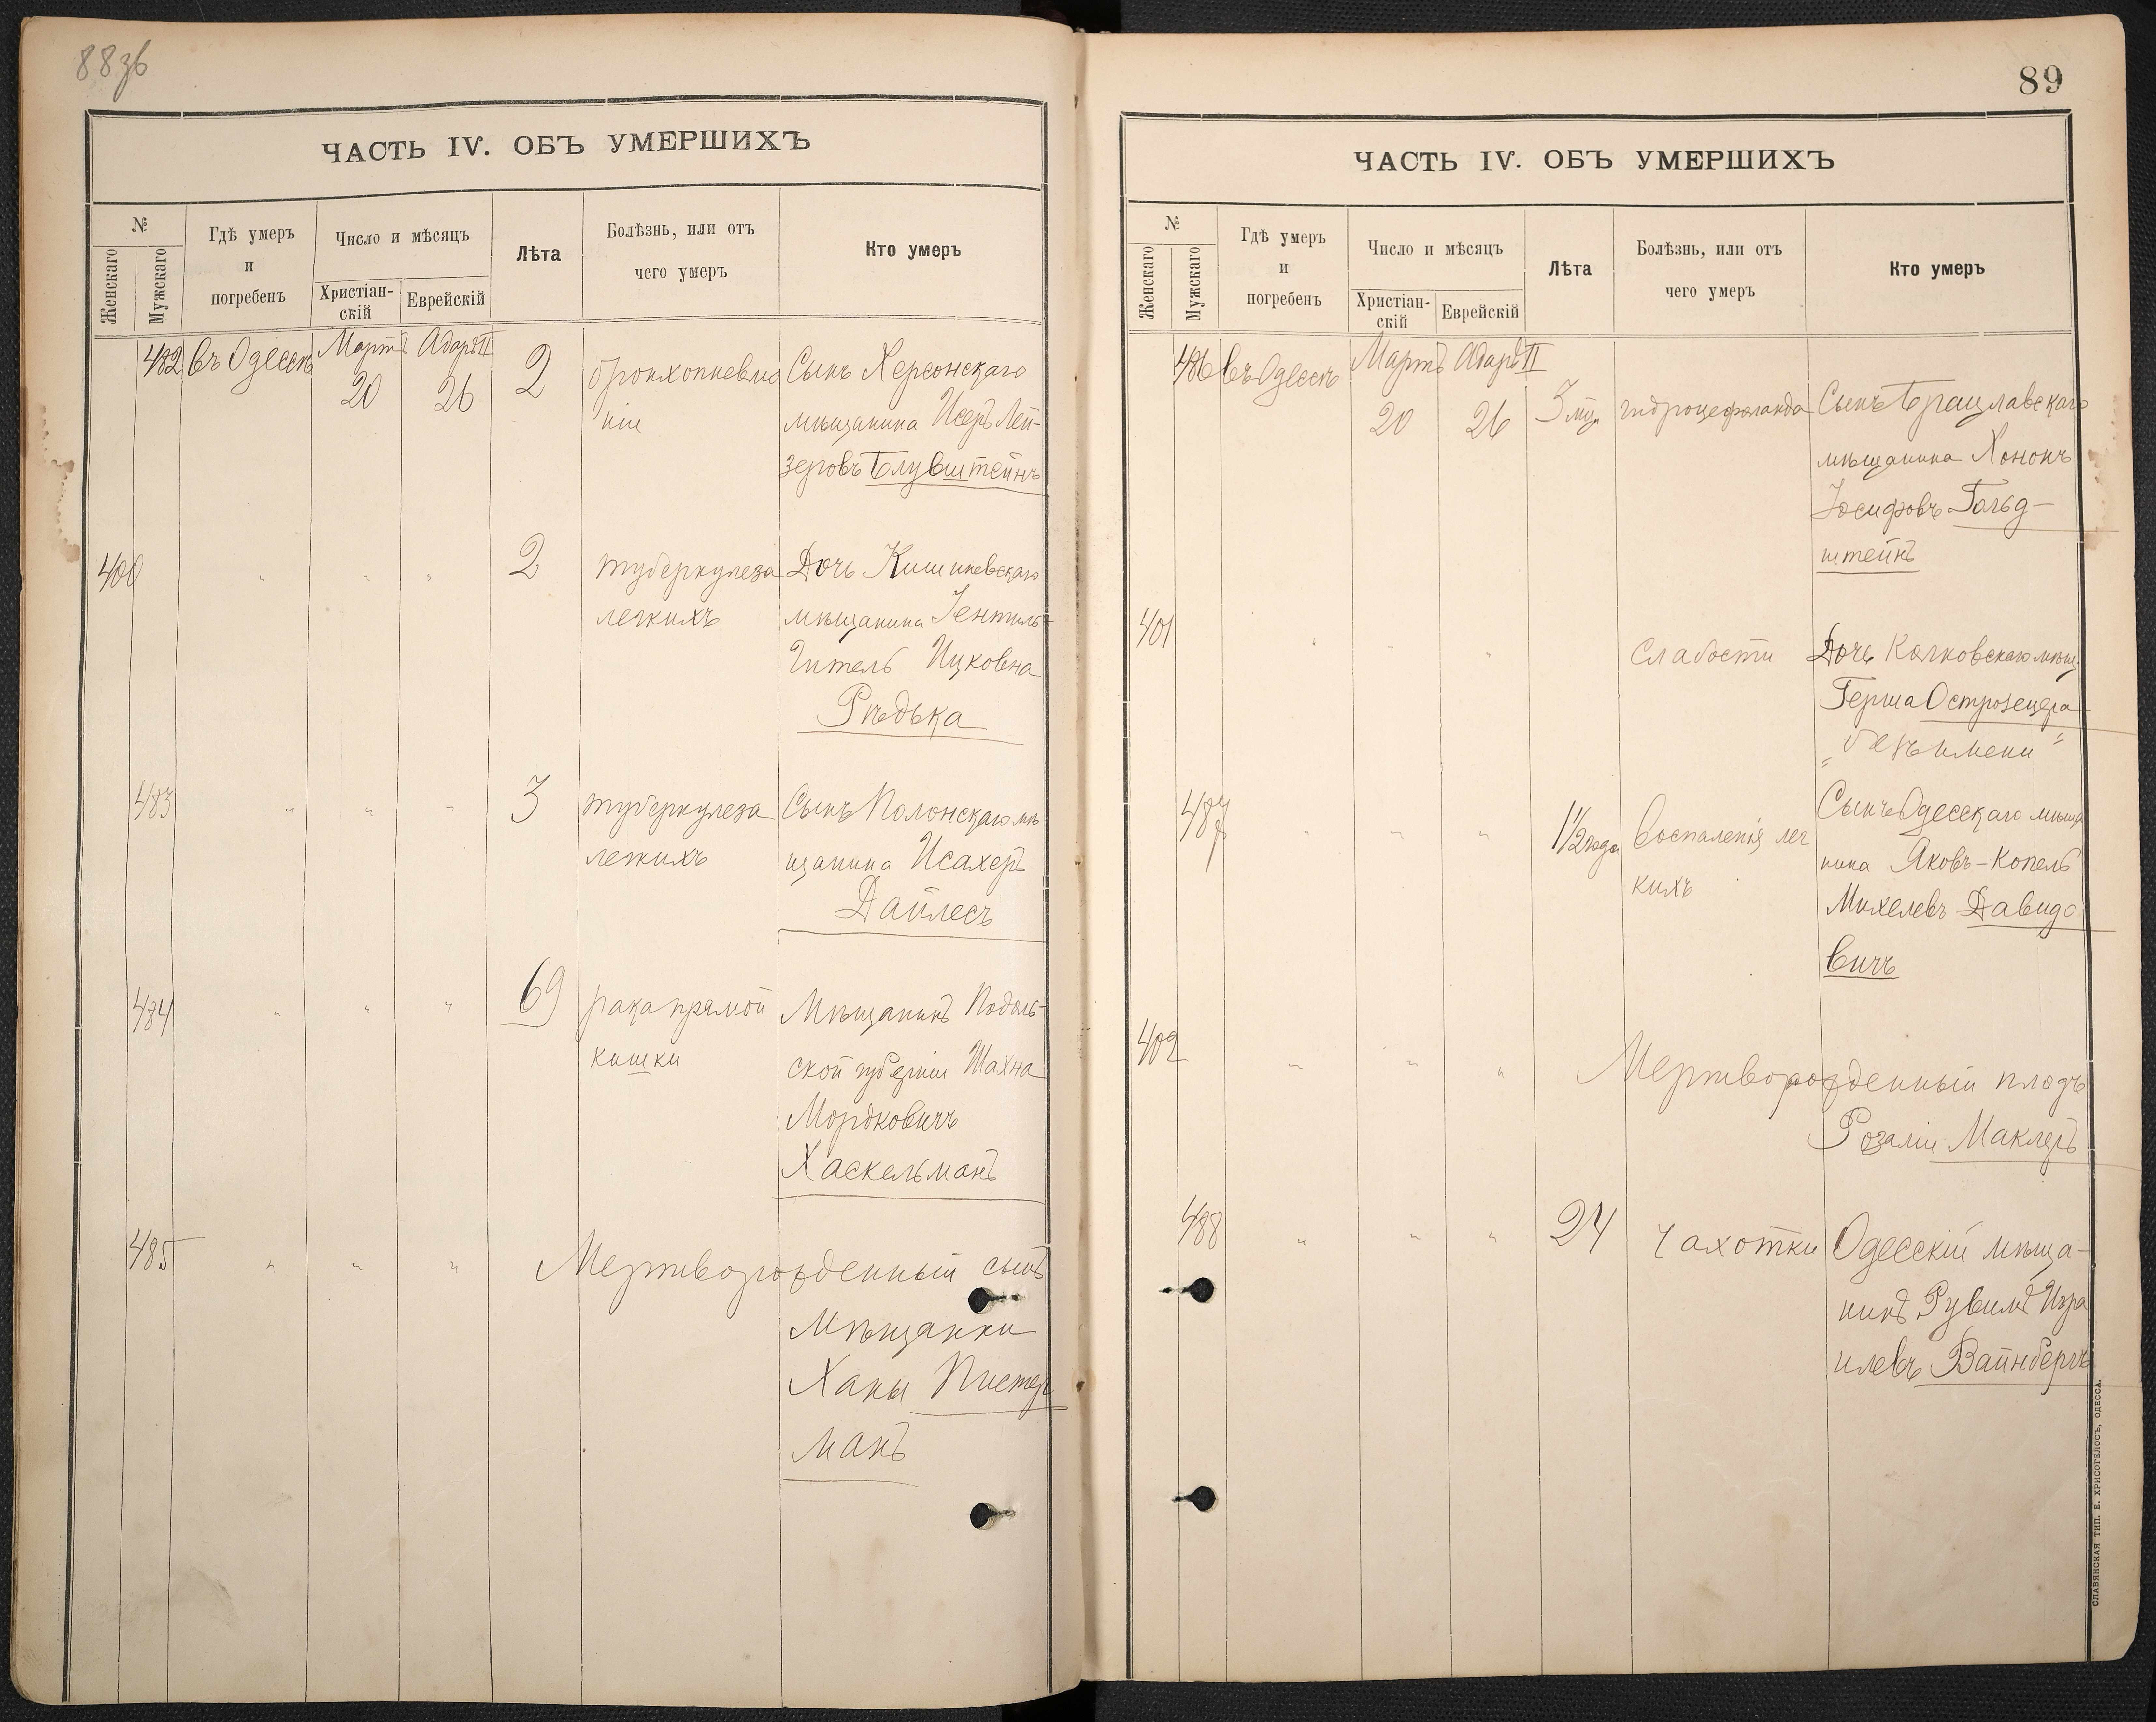 88зв
ЧАСТЬ IV. ОБЪ УМЕРШИХЪ
№
Женскаго
Мужскаго
Гдѣ умеръ
и
погребенъ
Число и мѣсяцъ
Христіан-
скій
Еврейскій
Лѣта
Болѣзнь, или отъ
чего умеръ
Кто умеръ
482 въ Одессѣ Мартъ Адаръ II
20 26 2 бронхопневмо Сынъ Херсонскаго
ніи мѣщанина Исеръ Лей-
зеровъ Блувштейнъ
400 " " " 2 туберкулеза Дочь Кишиневскаго
легкихъ мѣщанина Гентиль-
Гитель Ицковна
Рѣдька
483 " " " 3 туберкулеза Сынъ Полонскаго мѣ
легкихъ щанина Исахеръ
Дайлесъ
484 " " " 69 рака прямой Мѣщанинъ Подоль-
кишки ской губерніи Шахна
Мордковичъ
Хаскельманъ
485 " " " Мертворожденный сынъ
Мѣщанки
Ханы Пистер
манъ
89
ЧАСТЬ IV. ОБЪ УМЕРШИХЪ
№
Женскаго
Мужскаго
Гдѣ умеръ
и
погребенъ
Число и мѣсяцъ
Христіан-
скій
Еврейскій
Лѣта
Болѣзнь, или отъ
чего умеръ
Кто умеръ
486 въ Одессѣ Мартъ Адаръ II
20 26 3 мц. Сынъ Брацлавскаго
мѣщанина Хононъ
Іосифовъ Гольд-
штейнъ
401 " " " Слабости Дочь Колковскаго мѣщ.
Герша Острозецера
"безъ имени"
487 " " " 1½ года Воспаленія лег Сынъ Одесскаго мѣща
кихъ нина Яковъ-Копель
Михелевъ Давидо
вичъ
402 " " " Мертворожденный плодъ
Розаліи Маклеръ
488 " " " 24 Чахотки Одесскій мѣща-
нинъ Рувимъ Изра
илевъ Вайнбергъ
СЛАВЯНСКАЯ ТИП. Е. ХРИСОГЕЛОСЪ, ОДЕССА.